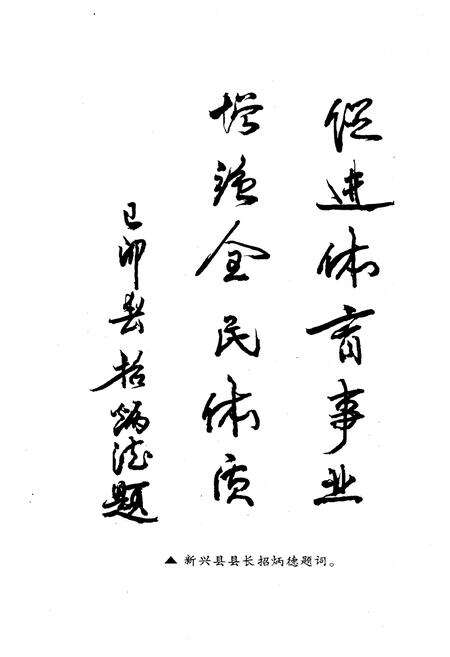 促进体育事业
增强全民体质
己卯春 招炳德题
▲ 新兴县县长招炳德题词。